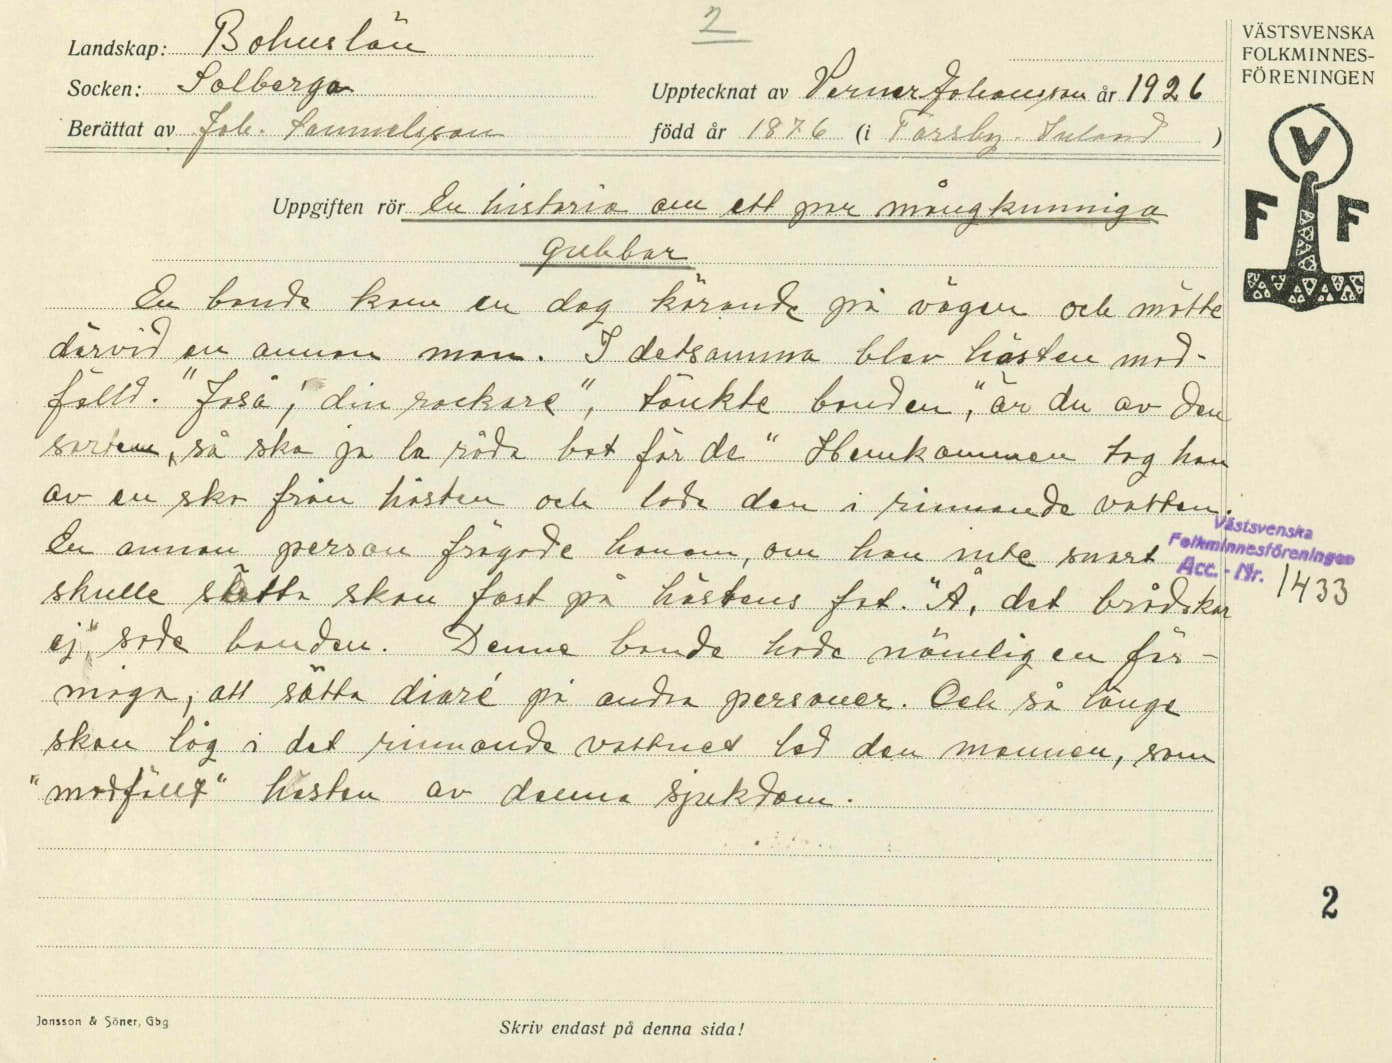 2
Landskap: Bohuslän
Socken: Solberga
Upptecknat av Verner Johansson år 1926
Berättat av Joh. Samuelsson
född år 1876 (i Torsby. Inland )
VÄSTSVENSKA
FOLKMINNES-
FÖRENINGEN
V
F F
Uppgiften rör En historia om ett par mångkunniga
gubbar
En bonde kom en dag körande på vägen och mötte
därvid en annan man. I detsamma blev hästen mod-
fälld. "Joså, din rackare", tänkte bonden, "är du av den
sorten, så ska ja la råda bot för de" Hemkommen tog han
av en sko från hästen och lade den i rinnande vatten.
En annan person frågade honom, om han inte snart
skulle sätta skon fast på hästens fot. "Å, det brådskar
ej", sade bonden. Denne bonde hade nämligen för-
måga, att sätta diaré på andra personer. Och så länge
skon låg i det rinnande vattnet led den mannen, som
"modfällt" hästen av denna sjukdom.
Västsvenska
Folkminnesföreningen
Acc. - Nr. 1433
2
Jonsson & Söner, Gbg
Skriv endast på denna sida!